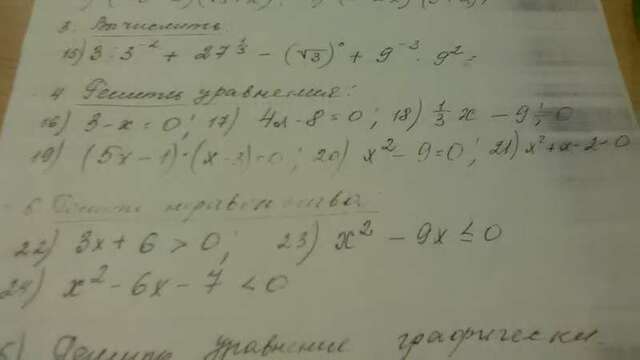 3. Вычислить.
15) 3 · 3⁻² + 27^⅓ − (√3)° + 9⁻³ · 9² =
4 Решить уравнения:
16) 3 − x = 0; 17) 4x − 8 = 0; 18) ⅓ x − 9 = 0
19) (5x − 1)·(x − 3) = 0; 20) x² − 9 = 0; 21) x² + x − 2 = 0
Решить неравенства
22) 3x + 6 > 0; 23) x² − 9x ≤ 0
24) x² − 6x − 7 < 0
Решить уравнение графически